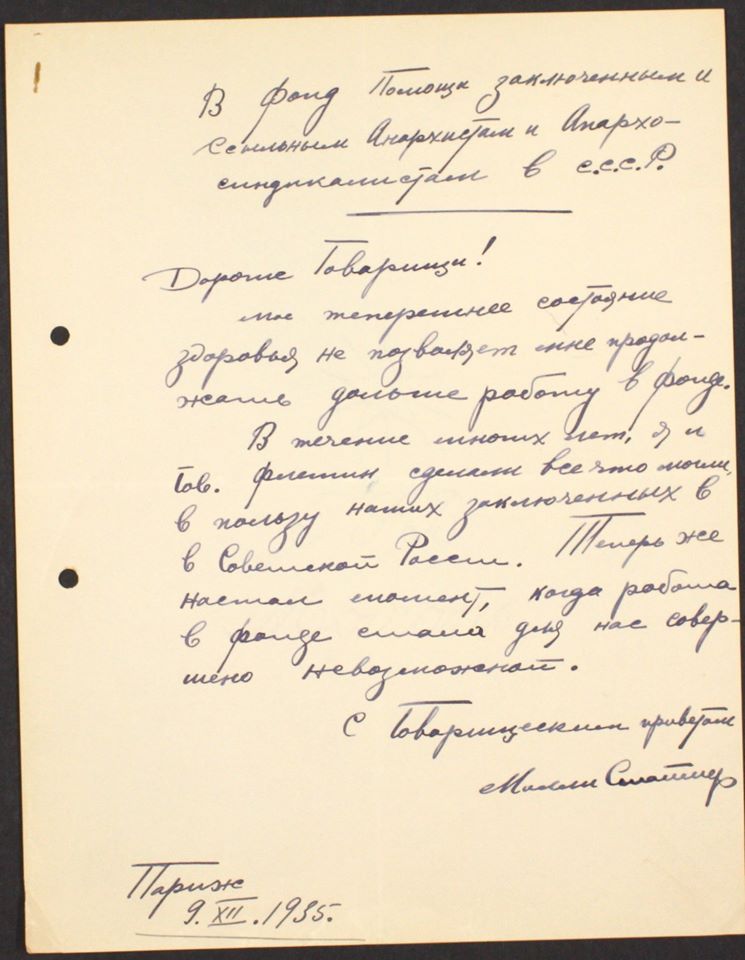 В Фонд Помощи заключенным и
ссыльным Анархистам и Анархо-
синдикалистам в С.С.С.Р.
Дорогие Товарищи!
мое теперешнее состояние
здоровья не позволяет мне продол-
жать дальше работу в фонде.
В течение многих лет, я и
Тов. Флешин сделали все что могли,
в пользу наших заключенных в
в Советской России. Теперь же
настал момент, когда работа
в фонде стала для нас совер-
шено невозможной.
С Товарищеским приветом
Молли Стаймер
Париж
9.XII.1935.